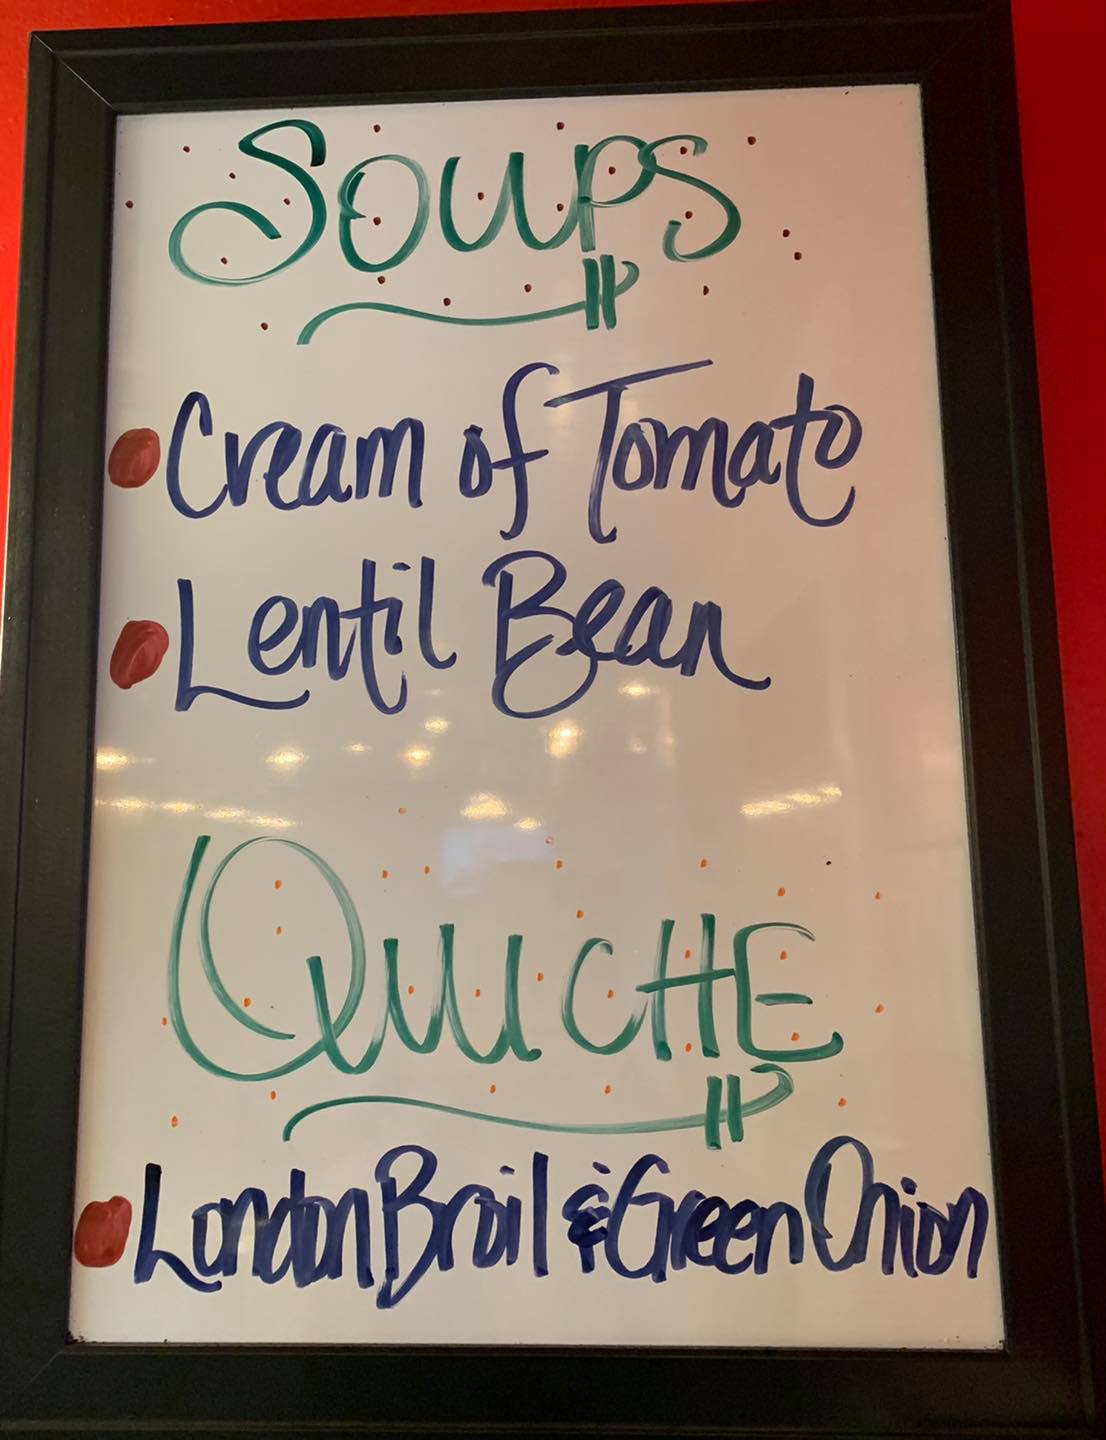 SOUPS
Cream of Tomato
Lentil Bean
QUICHE
London Broil & Green Onion